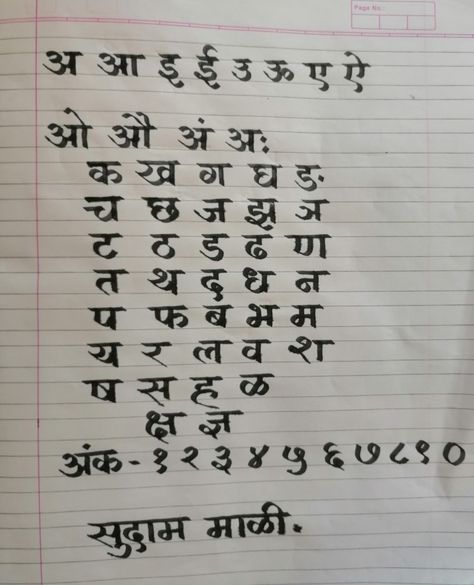 Page No.
अ आ इ ई उ ऊ ए ऐ
ओ औ अं अः
क ख ग घ ङ
च छ ज झ ञ
ट ठ ड ढ ण
त थ द ध न
प फ ब भ म
य र ल व श
ष स ह ळ
क्ष ज्ञ
अंक - १ २ ३ ४ ५ ६ ७ ८ ९ ०
सुदाम माळी.